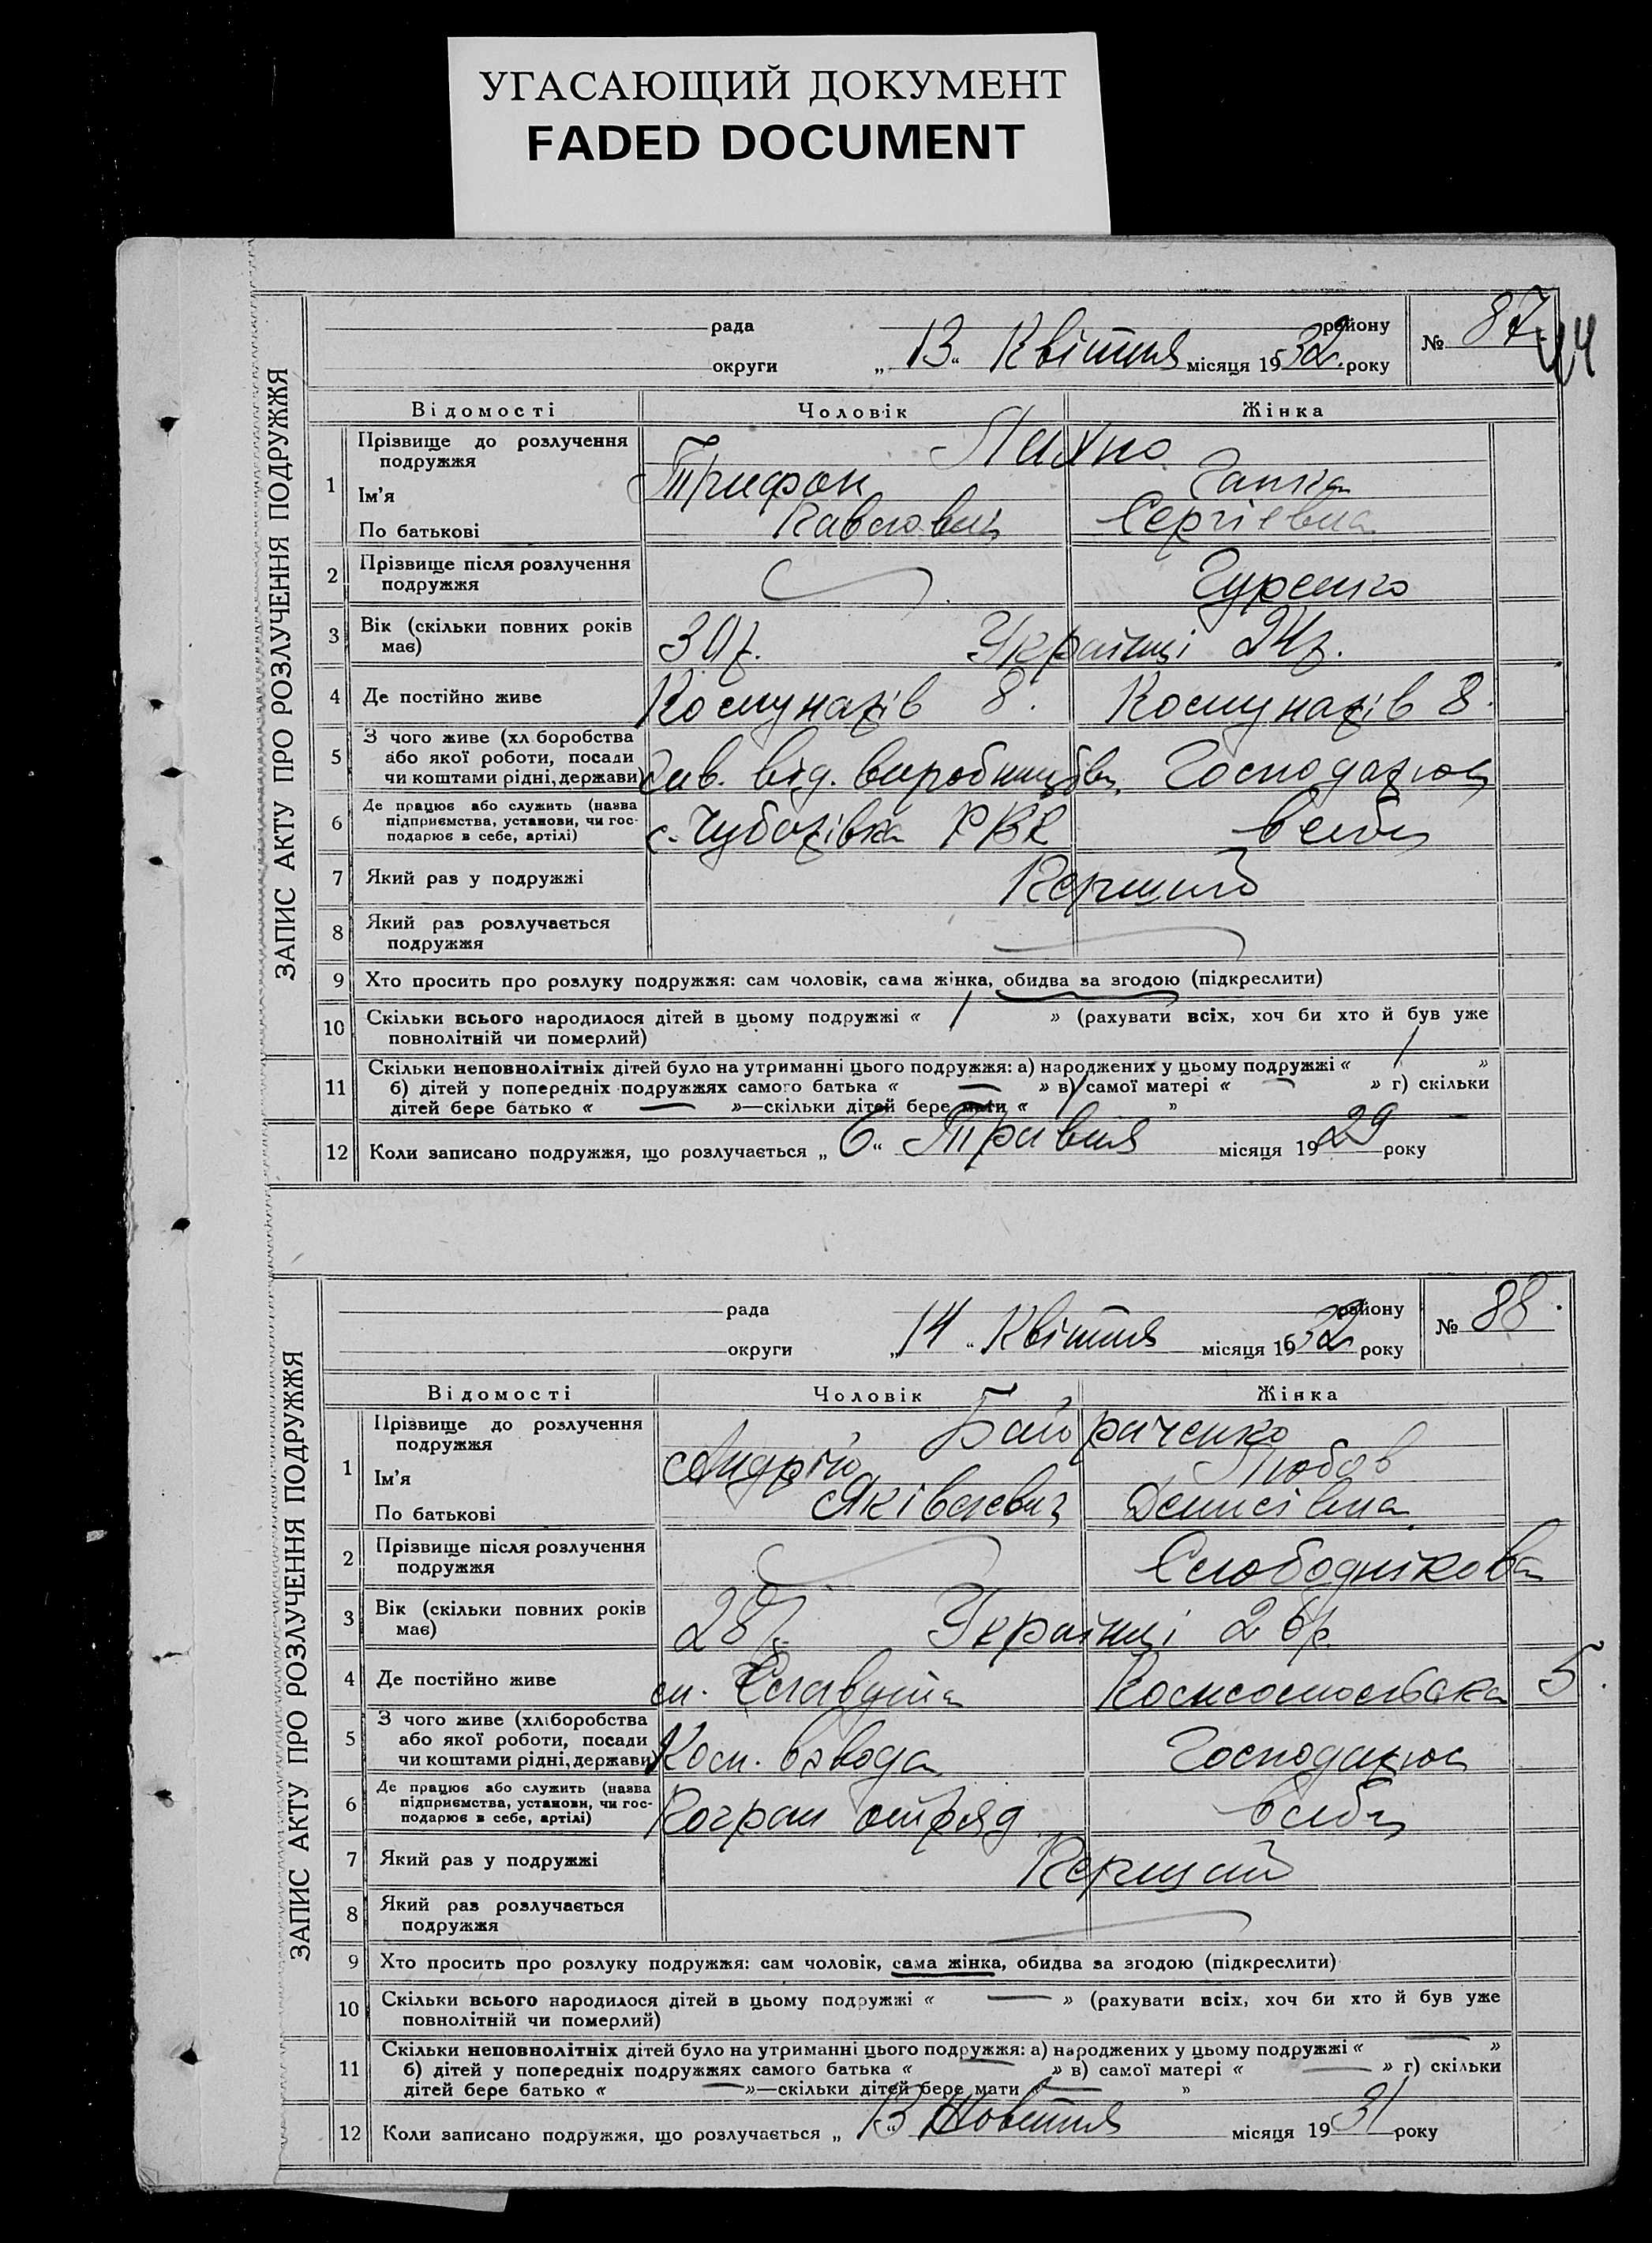 УГАСАЮЩИЙ ДОКУМЕНТ
FADED DOCUMENT
ЗАПИС АКТУ ПРО РОЗЛУЧЕННЯ ПОДРУЖЖЯ
рада району № 87
44
округи „13“ Квітня місяця 1932 року
Відомості Чоловік Жінка
1 Прізвище до розлучення подружжя Пихно
Ім'я Трифон Ганна
По батькові Павлович Сергієвна
2 Прізвище після розлучення подружжя Гуренко
3 Вік (скільки повних років має) 30р. Українці 24р.
4 Де постійно живе Комунарів 8. Комунарів 8.
5 З чого живе (хл боробства або якої роботи, посади чи коштами рідні, держави) від. виробництва. Господарює
6 Де працює або служить (назва підприємства, установи, чи господарює в себе, артілі) с. Чубарівка РВК в себе
7 Який раз у подружжі Перший
8 Який раз розлучається подружжя
9 Хто просить про розлуку подружжя: сам чоловік, сама жінка, обидва за згодою (підкреслити)
10 Скільки всього народилося дітей в цьому подружжі « 1 » (рахувати всіх, хоч би хто й був уже
повнолітній чи померлий)
11 Скільки неповнолітніх дітей було на утриманні цього подружжя: а) народжених у цьому подружжі « 1 »
б) дітей у попередніх подружжях самого батька « — » в) самої матері « — » г) скільки
дітей бере батько « — »—скільки дітей бере мати « 1 »
12 Коли записано подружжя, що розлучається „6“ Травня місяця 1929 року
ЗАПИС АКТУ ПРО РОЗЛУЧЕННЯ ПОДРУЖЖЯ
рада району № 88.
округи „14“ Квітня місяця 1932 року
Відомості Чоловік Жінка
1 Прізвище до розлучення подружжя Байраченко
Ім'я Андрій Любов
По батькові Яківлевич Денисівна
2 Прізвище після розлучення подружжя Слободнікова
3 Вік (скільки повних років має) 28р. Українці 26р.
4 Де постійно живе ст. Славута Комсомольська 5.
5 З чого живе (хліборобства або якої роботи, посади чи коштами рідні, держави) Ком. взвода Господарює
6 Де працює або служить (назва підприємства, установи, чи господарює в себе, артілі) Погран отряд в себе
7 Який раз у подружжі Перший
8 Який раз розлучається подружжя
9 Хто просить про розлуку подружжя: сам чоловік, сама жінка, обидва за згодою (підкреслити)
10 Скільки всього народилося дітей в цьому подружжі « — » (рахувати всіх, хоч би хто й був уже
повнолітній чи померлий)
11 Скільки неповнолітніх дітей було на утриманні цього подружжя: а) народжених у цьому подружжі « — »
б) дітей у попередніх подружжях самого батька « — » в) самої матері « — » г) скільки
дітей бере батько « — »—скільки дітей бере мати « — »
12 Коли записано подружжя, що розлучається „13“ Жовтня місяця 1931 року